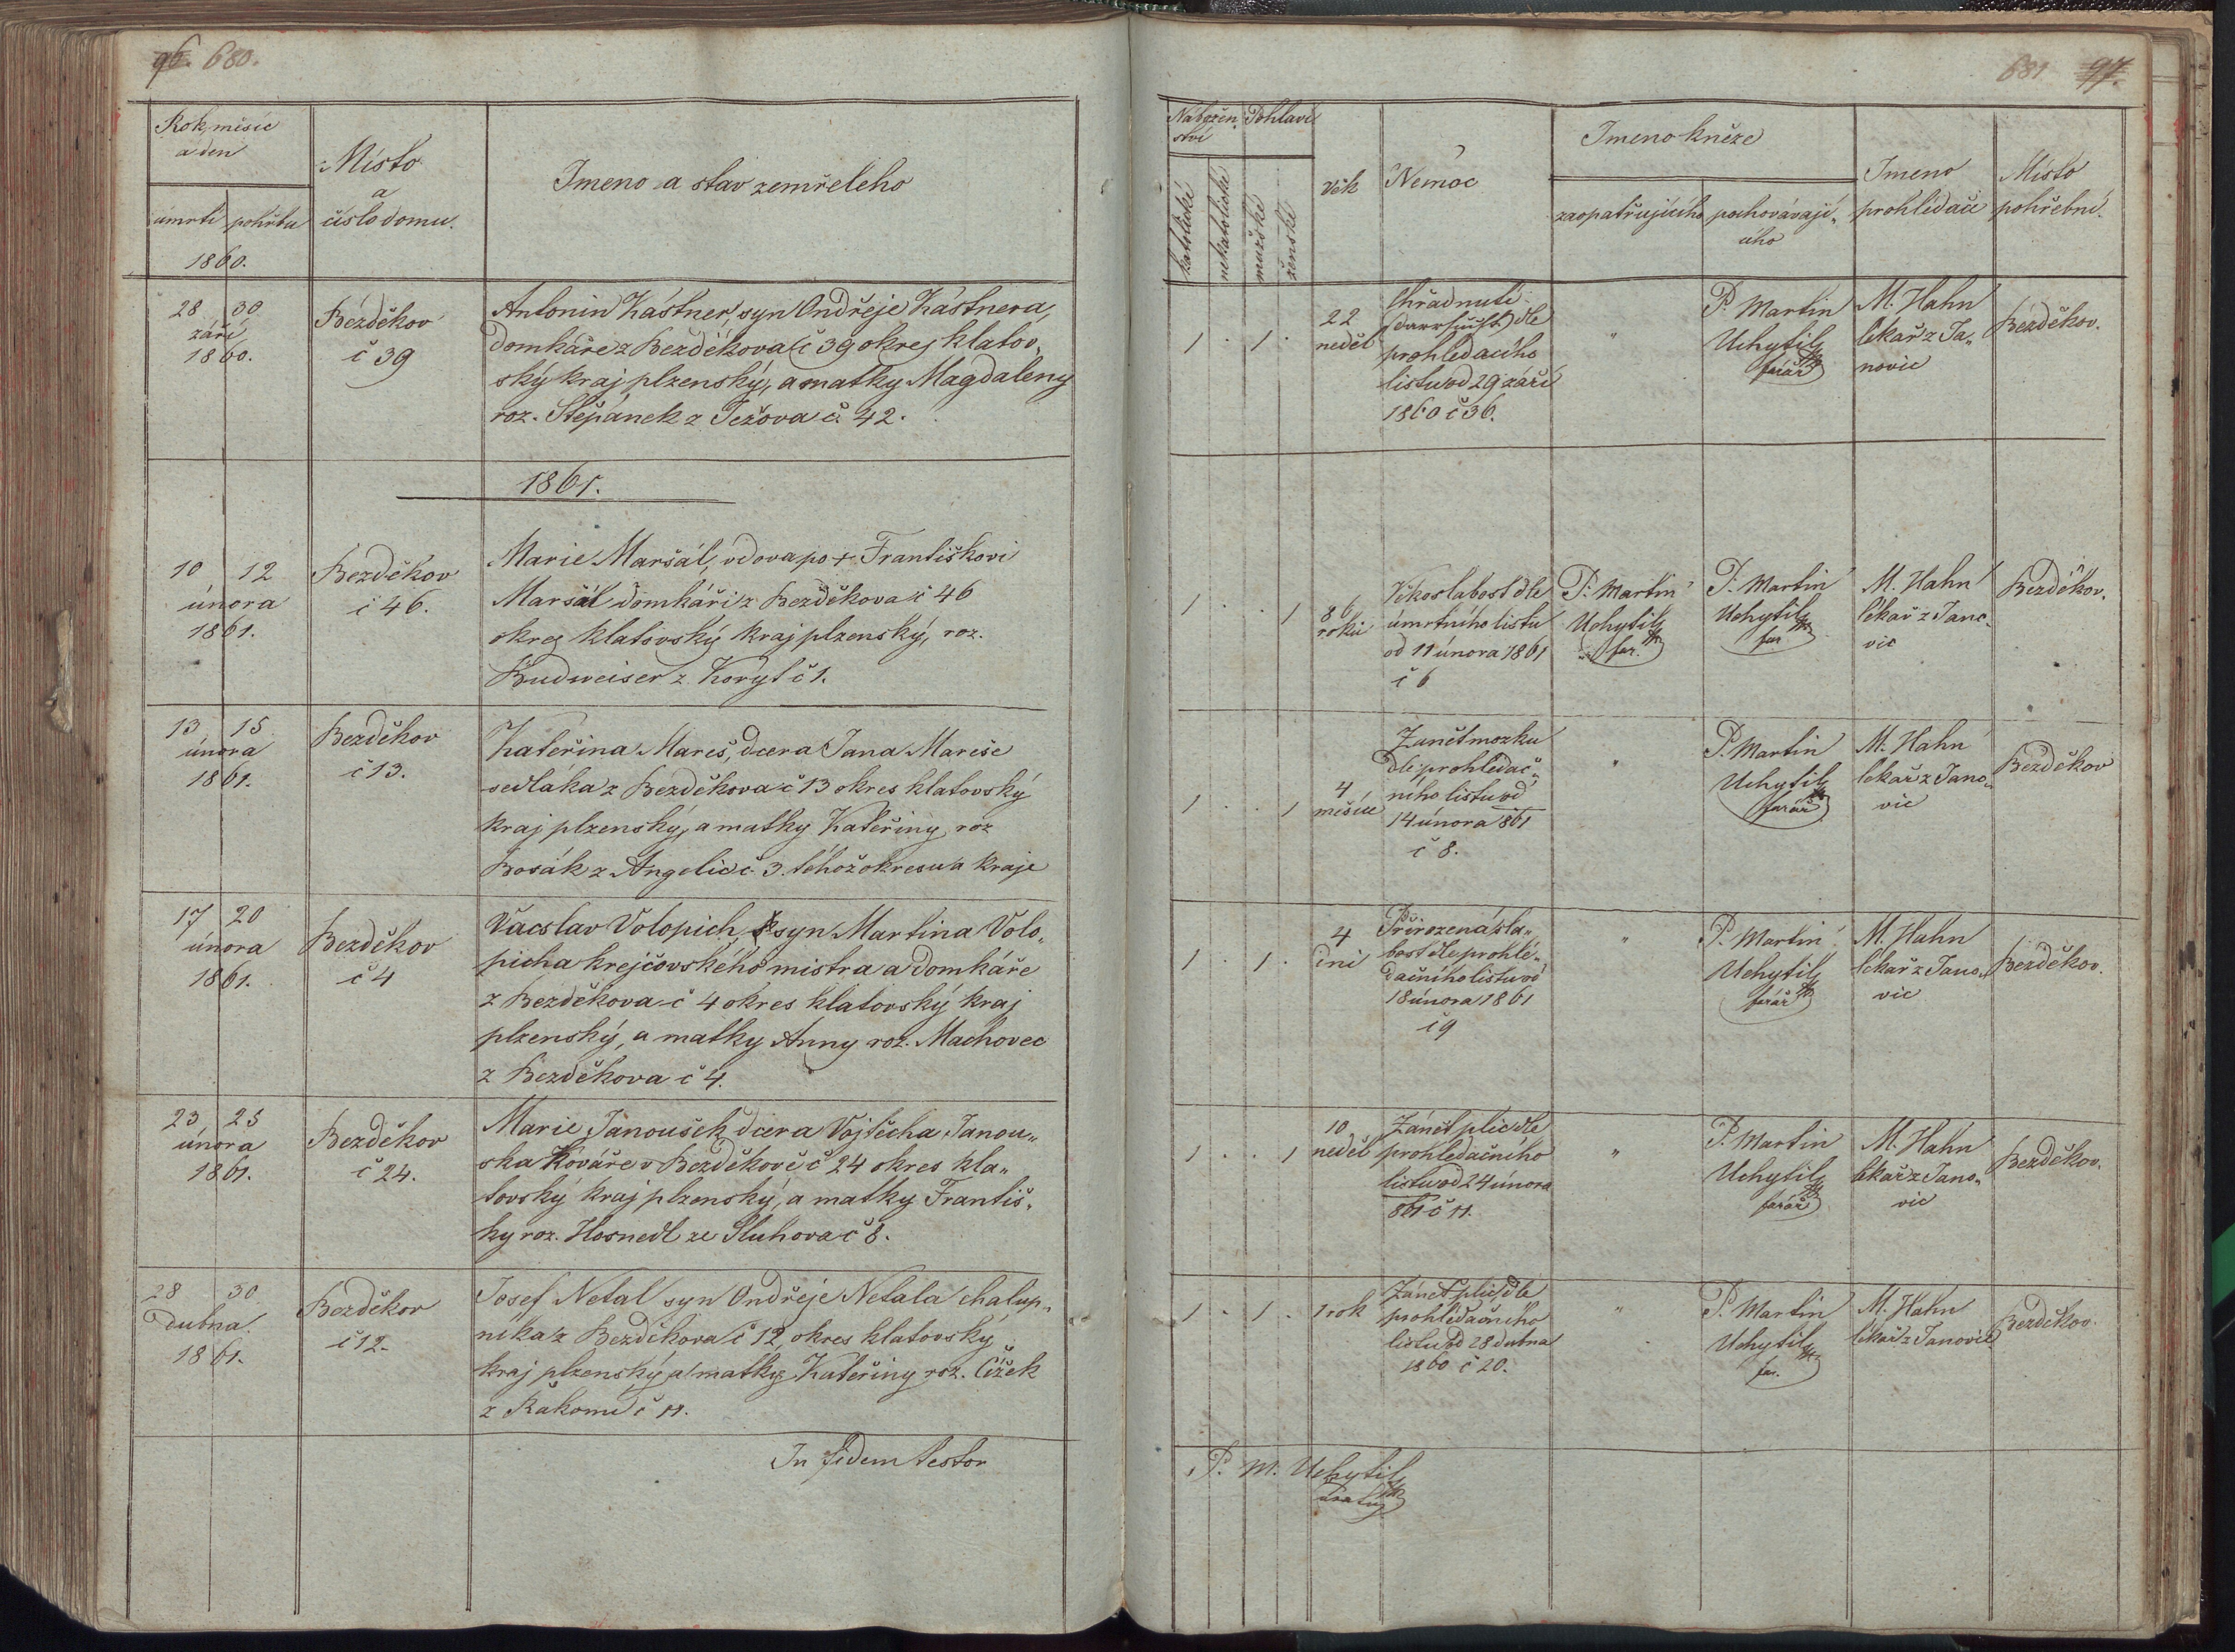 96. 680.
Rok, měsíc
a den
úmrtí pohřbu
1860.
Místo
a
číslo domu.
Jmeno a stav zemřeleho
28 30
září
1860.
Bezděkov
č 39
Antonin Kástner, syn Ondřeje Kástnera,
domkáře z Bezděkova č 39 okres klatov„
ský kraj plzenský, a matky Magdaleny
roz. Štěpánek z Ježova č. 42.
1861.
10 12
února
1861.
Bezděkov
č 46.
Marie Maršál, vdova po + Františkovi
Maršál domkáři z Bezděkova č 46
okres klatovský kraj plzenský, roz.
Budweiser z Koryt č 1.
13 15
února
1861.
Bezděkov
č 13.
Kateřina Mareš, dcera Jana Mareše
sedláka z Bezděkova č 13 okres klatovský
kraj plzenský, a matky Kateřiny roz
Bosák z Angelic č. 3. téhož okresu a kraje
17 20
února
1861.
Bezděkov
č 4
Václav Volopich, syn Martina Volo„
picha krejčovského mistra a domkáře
z Bezděkova č 4 okres klatovský kraj
plzenský, a matky Anny roz. Machovec
z Bezděkova č 4.
23 25
února
1861.
Bezděkov
č 24.
Marie Janoušek dcera Vojtěcha Janou„
ska kováře v Bezděkově č 24 okres kla„
tovský kraj plzenský, a matky Františ„
ky roz. Hosnedl ze Sluhova č 8.
28 30
dubna
1861.
Bezděkov
č 12.
Josef Netal syn Ondřeje Netala chalup„
níka z Bezděkova č 12, okres klatovský
kraj plzenský a matky Kateřiny roz. Čížek
z Rakomě č 11.
In fidem testor
681 97.
Nábožen„
ství
Pohlaví
katolické
nekatolické
mužské
ženské
Věk
Nemoc
Jmeno kněze
zaopatřujícího
pochovávají„
cího
Jmeno
prohlédače
Místo
pohřební.
1 . 1 .
22
neděl
Chřadnutí
(Darrsucht) dle
prohledacího
listu od 29 září
1860 č 36.
"
P. Martin
Uchytil
farář
M. Hahn
lékař z Ja„
novic
Bezděkov.
1 . . 1
86
roků
Věkoslabost dle
úmrtního listu
od 11 února 1861
č 6
P. Martin
Uchytil
far.
P. Martin
Uchytil
far
M. Hahn
lékař z Jano„
vic
Bezděkov.
1 . . 1
4
měsíce
Zanět mozku
dle prohlédač„
ního listu od
14 února 861
č 8.
"
P. Martin
Uchytil
farář
M. Hahn
lékař z Jano„
vic
Bezděkov
1 . 1 .
4
dni
Přirozená sla„
bost dle prohlé„
dačního listu od
18 února 1861
č 9
"
P. Martin
Uchytil
farář
M. Hahn
lékař z Jano„
vic
Bezděkov.
1 . . 1
10
neděl
Zánět plic dle
prohledačního
listu od 24 února
861 č 11.
"
P. Martin
Uchytil
farář
M. Hahn
lékař z Jano„
vic
Bezděkov.
1 . 1 .
1 rok
Zánět plic dle
prohlédačního
listu od 28 dubna
1860 č 20.
"
P. Martin
Uchytil
far.
M. Hahn
lékař z Janovic
Bezděkov.
P. M. Uchytil